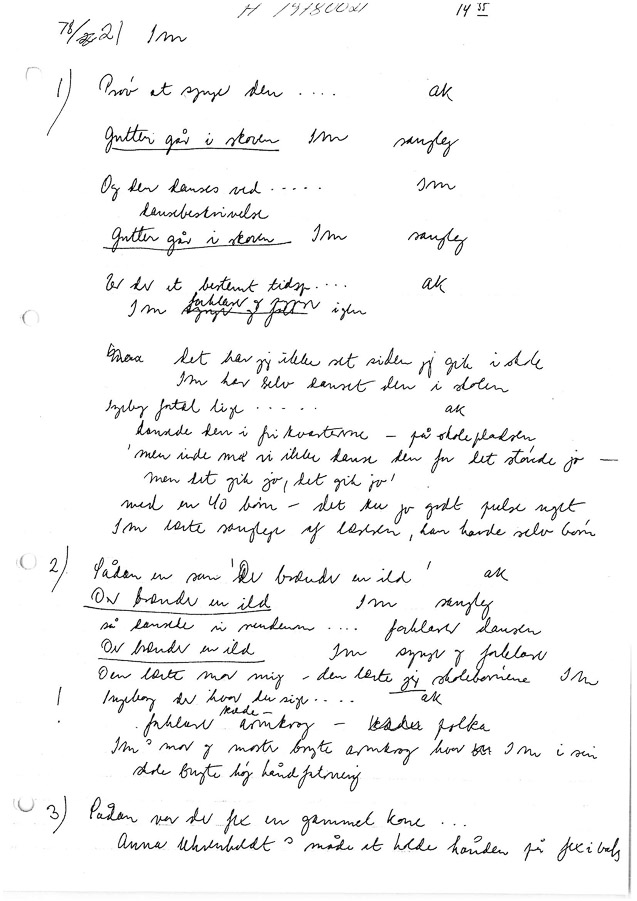 H 1978002 14 35
78/ 2) Im
1) Prøv at synge den .... ak
Gutter går i skoven Im sangleg
Og den danses ved ..... Im
dansebeskrivelse
Gutter går i skoven Im sangleg
Er der et bestemt tidsp.... ak
Im forklarer og igen
det har jeg ikke set siden jeg gik i skole
Im har selv danset den i skolen
Ingeborg fortæl lige ...... ak
dansede den i frikvarterne – på skolepladsen
'men inde må vi ikke danse den for det støvede jo –
men det gik jo, det gik jo'
med en 40 børn – det ku jo godt pulse noget
Im lærte sanglege af læreren, han havde selv børn
2) Sådan en som 'Der brænder en ild' ak
Der brænder en ild Im sangleg
så dansede vi rundt .... forklarer dansen
Der brænder en ild Im synger og forklarer
Den lærte mor mig – den lærte jeg skolebørnene Im
! Ingeborg der hvor du sige .... ak
forklarer kæde– armkrog – polka
Im's mor og moster brugte armkrog hvor Im i sin
skole brugte høj håndfatning
3) Sådan var der fx en gammel kone ...
Anna 's måde at holde hånden på fx i vals